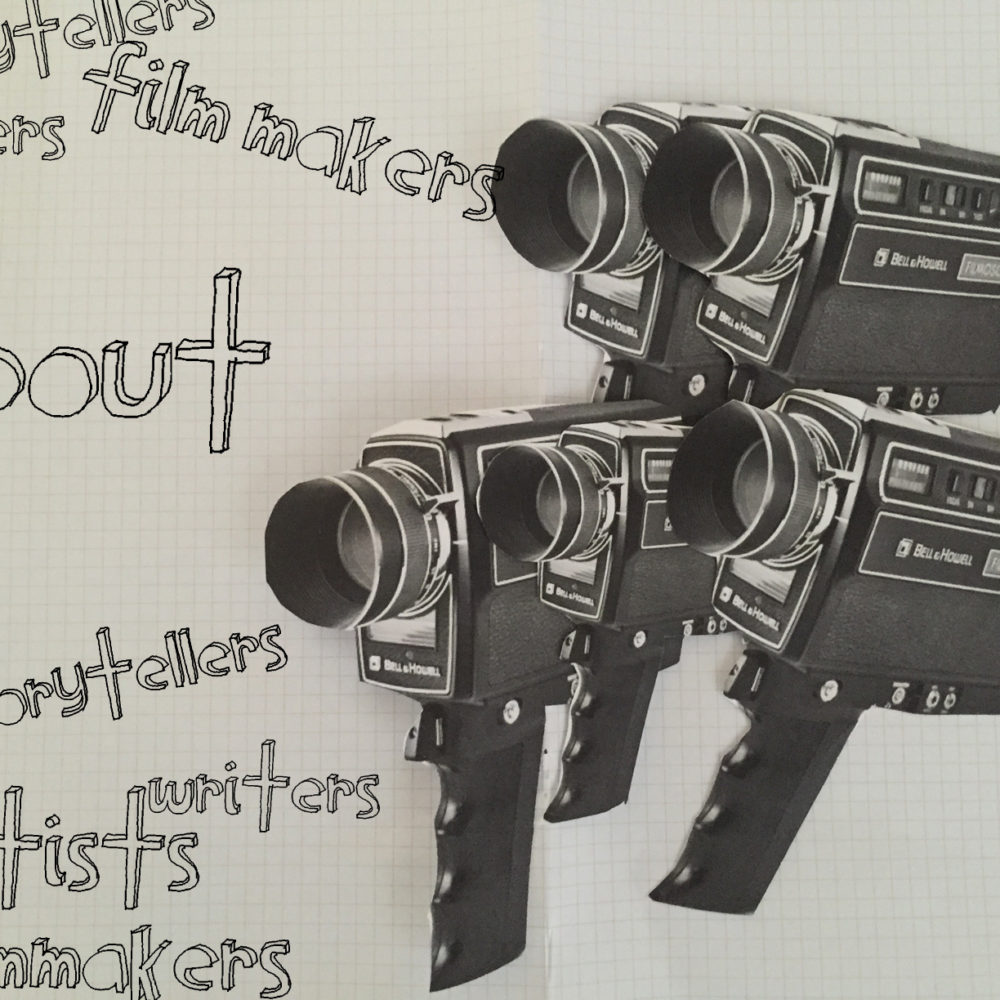 ytellers
film makers
ers
Bell & Howell
Bell & Howell
Bell & Howell
out
Bell & Howell
Bell & Howell
Bell & Howell
Bell & Howell
orytellers
writers
tists
mmakers